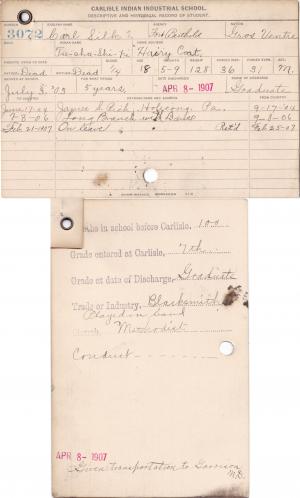 CARLISLE INDIAN INDUSTRIAL SCHOOL.
DESCRIPTIVE AND HISTORICAL RECORD OF STUDENT.
3072 Carl Silk 2 Fort Berthold Gros Ventre
Hairy Coat.
Dead Dead 4/4 18 5-9 128 36 31 M.
July 8, '03 5 years, APR 8-1907 Graduate
June 17-04 James Pa. 9-17-04
Long Branch with Band 9-8-06
Feb 21-1907 On leave Ret'd Feb 25-07
Months in school before Carlisle, 100
Grade entered at Carlisle, 7th
Grade at date of Discharge, Graduate
Trade or Industry, Blacksmith
Played in band
Church, Methodist
Conduct
APR 8-1907
Given transportation to Garrison
N.D.